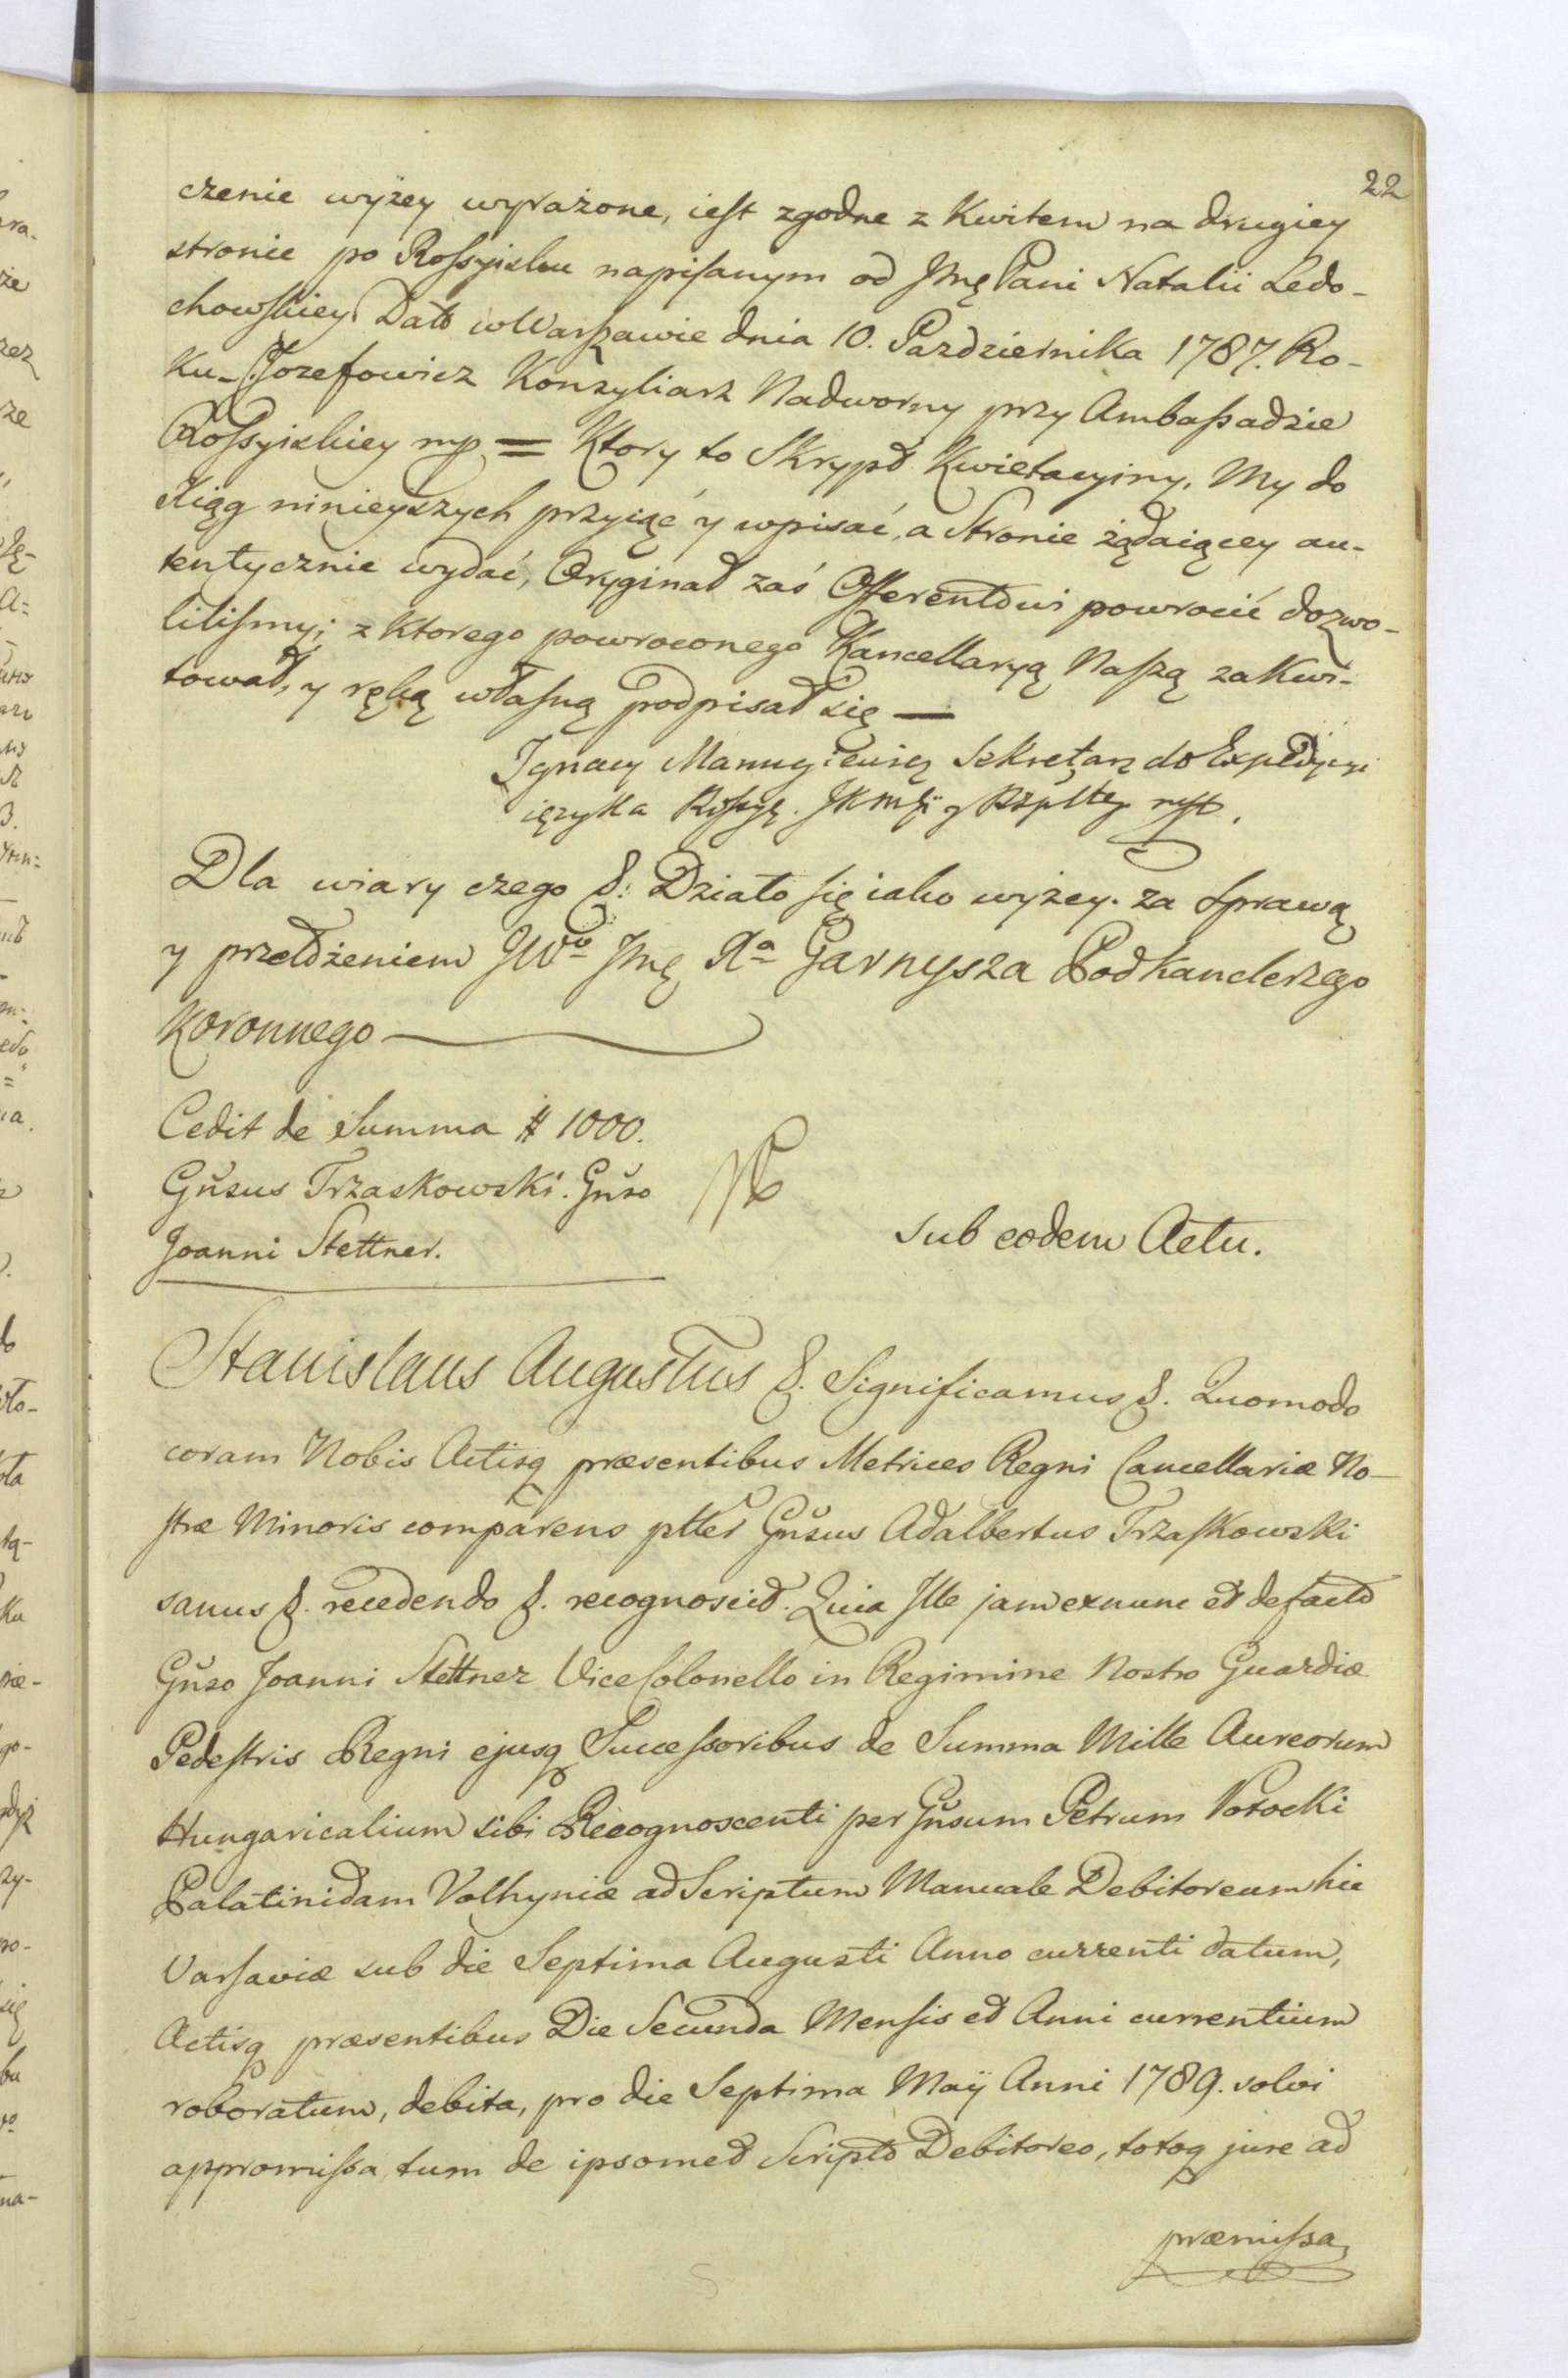 22
czenie wyżey wyrażone, iest zgodne z Kwitem na drugiey
stronie po Rossyisku napisanym od Jmę Pani Natalii Ledo-
chowskiey. Datt w Warszawie dnia 10. Pazdziernika 1787. Ro-
Ku_ Jozefowicz Konzyliarz Nadworny przy Ambassadzie
Rossyiskiey mp = Ktory to Skrypt Kwietacyiny, My do
Xiąg ninieyszych przyiąć y wpisać, a Stronie żądaiącey au-
tentycznie wydać, Oryginał zaś Offerentowi powrocić dozwo-
lilismy; z Ktorego powroconego Kancellaryą Naszą zakwi-
tował, y ręką własną podpisał się —
Ignacy Sekretarz do Expedycyi
ięzyka Rossyę. JKMci y Rzpltey
Dla wiary czego &: Działo się iako wyżey. za sprawą
y przełożeniem JWo Jmę Xa Garnysza Podkanclerzego
Koronnego
Cedit de Summa # 1000.
Gñsus Trzaskowski. Gñso
Joanni Stettner.
sub eodem Actu.
Stanislaus Augustus &. Significamus &. Quomodo
coram Nobis Actisq præsentibus Metrices Regni Cancellariæ No-
stræ Minoris comparens ptler Gñsus Adalbertus Trzaskowski
sanus &. recedendo &. recognoscit. Quia Ille jam exnunc et defacto
Gñso Joanni Stettner ViceColonello in Regimine Nostro Guardiæ
Pedestris Regni ejusq Successoribus de Summa Mille Aureorum
Hungaricalium sibi Recognoscenti per Gñsum Petrum Potocki
Palatinidam Volhyniæ ad Scriptum Manuale Debitoreum hic
Varsaviæ sub die Septima Augusti Anno currenti datum,
Actisq præsentibus Die Secunda Mensis et Anni currentium
roboratum, debita, pro die Septima Maÿ Anni 1789. solvi
appromissa, tum de ipsomet Scripto Debitoreo, totoq jure ad
præmissa